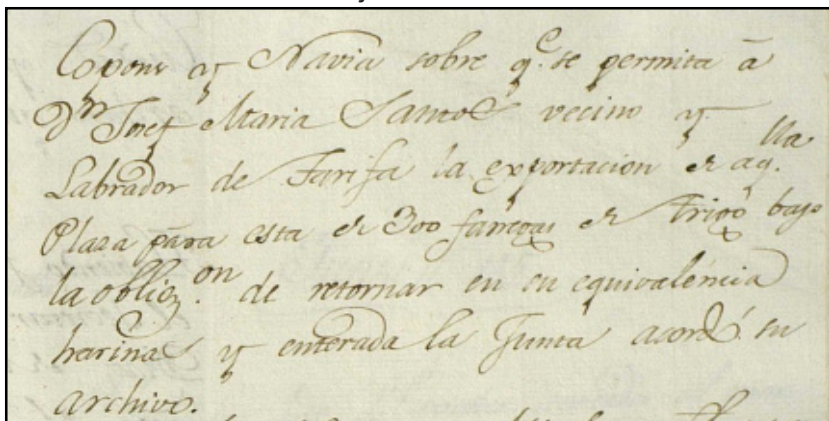 Copons y Navia sobre q.e se permita á
D.n Josef Maria Santos vecino y
Labrador de Tarifa la exportacion de aq.lla
Plaza para esta de 300 fanegas de Trigo bajo
la oblig.on de retornar en su equivalencia
harinas y enterada la Junta acordó su
archivo.